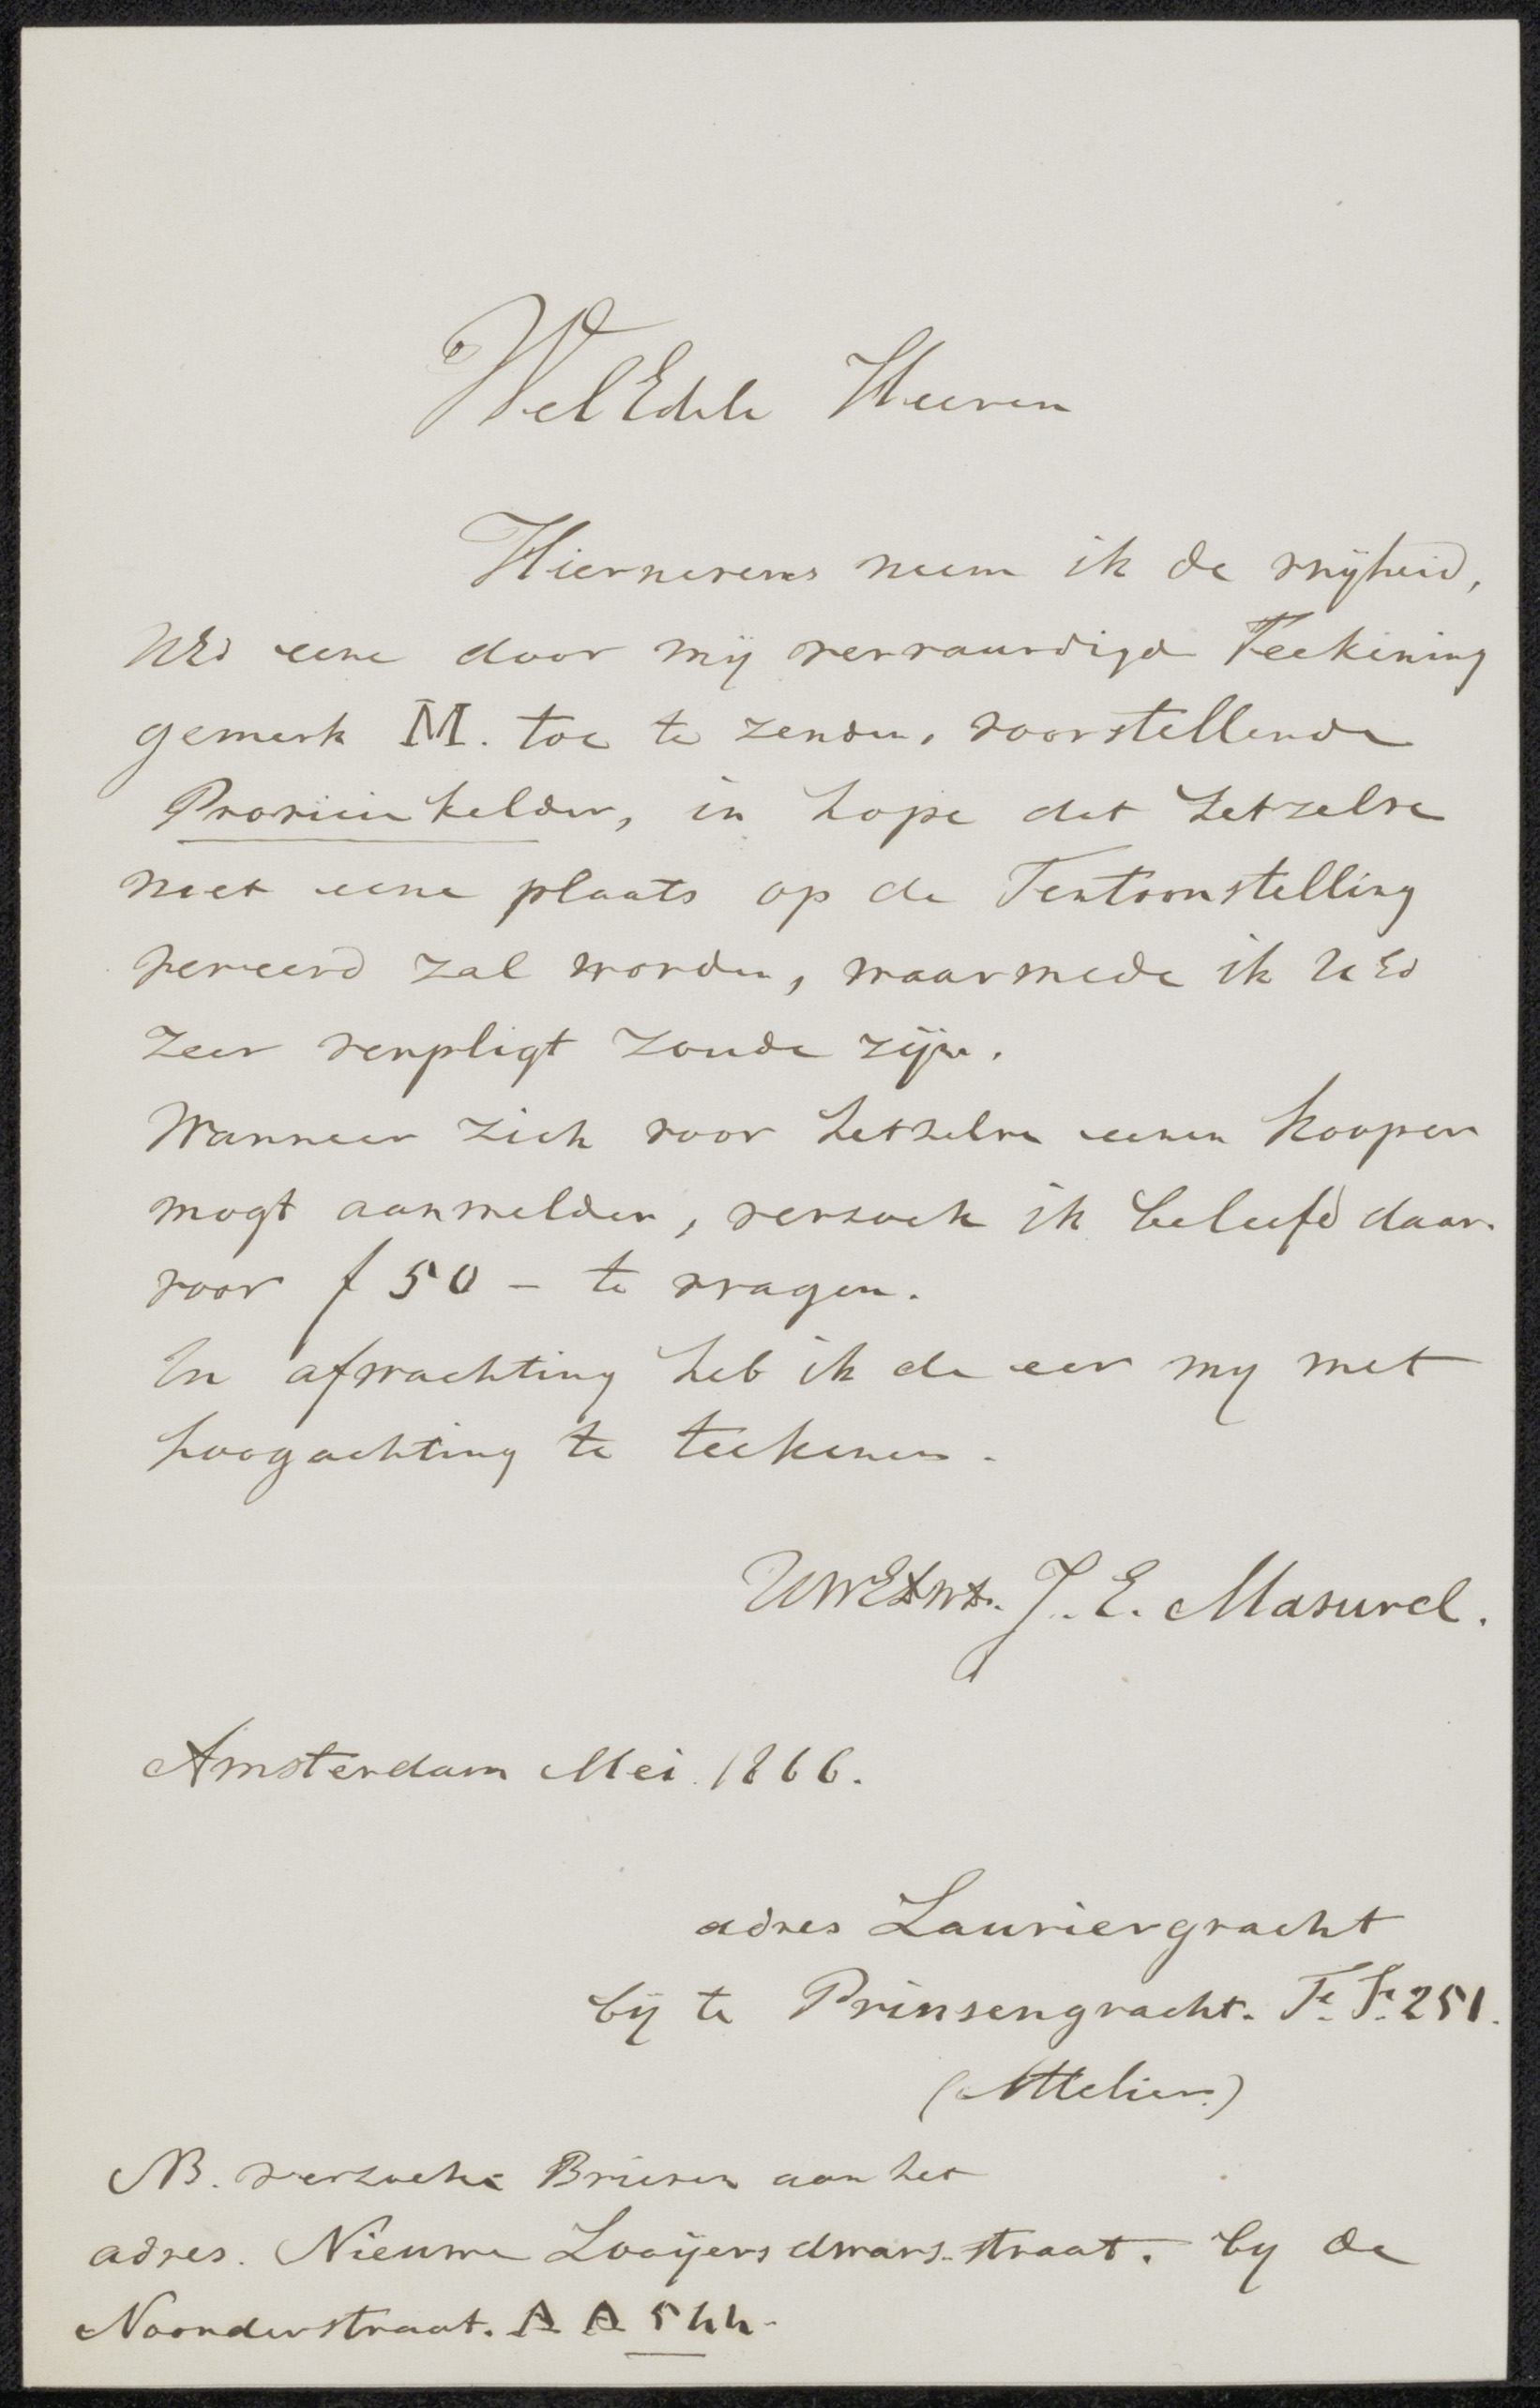 WelEdele Heeren
Hiernevens neem ik de vrijheid,
UEd eene door mij vervaardigde Teekening
gemerk M. toe te zenden, voorstellende
Provisie kelder, in hope dat hetzelve
met eene plaats op de Tentoonstelling
vereerd zal worden, waarmede ik UEd
zeer verpligt zoude zijn.
Wanneer zich voor hetzelve eenen kooper
mogt aanmelden, verzoek ik beleefd daar-
voor f 50 - te vragen.
In afwachting heb ik de eer my met
hoogachting te teekenen.
J. E. Masurel.
Amsterdam Mei 1866.
adres Lauriergracht
bij te Prinsengracht. F. F. 251.
(Attelier.)
NB. verzoeke Brieven aan het
adres. Nieuwe Looijers dwars-straat. by de
Noorderstraat. A A 544.